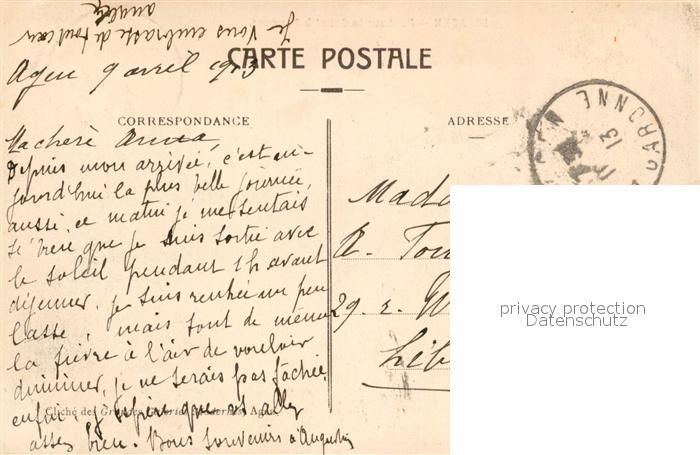 Je vous embrasse de tout cœur
CARTE POSTALE
Agen 9 avril 1913
CORRESPONDANCE
ADRESSE
Ma chère Anna,
Depuis mon arrivée, c'est au-
jourd'hui la plus belle journée,
aussi, ce matin je me sentais
si bien que je suis sortie avec
le soleil pendant 1 h avant
déjeuner. je suis rentrée un peu
lasse, mais tout de même
la fièvre à l'air de vouloir
diminuer, je ne serais pas fâchée.
enfin, j'espère que vs allez
assez bien. Bons souvenirs à Augustin
Cliché des Grandes Galeries Modernes, Agen
Mado
A. Tou
29. r.
Lib
GARONNE
13
privacy protection
Datenschutz